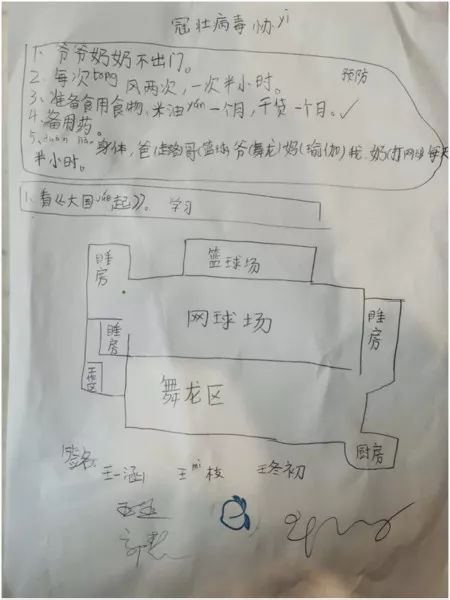 冠壮病毒协yì
1、爷爷奶奶不出门。
2、每次tōng风两次,一次半小时。
预防
3、准备食用食物、米油yán一个月,干货一个月。✓
4、备用药。
5、duàn liàn身体,爸(走路)哥(篮球)爷(舞龙)妈(瑜伽)我、奶(打网球)每天
半小时。
1、看《大国jué起》。 学习
睡房
篮球场
网球场
睡房
睡房
舞龙区
厨房
签名
王一涵
王 枝
王冬初